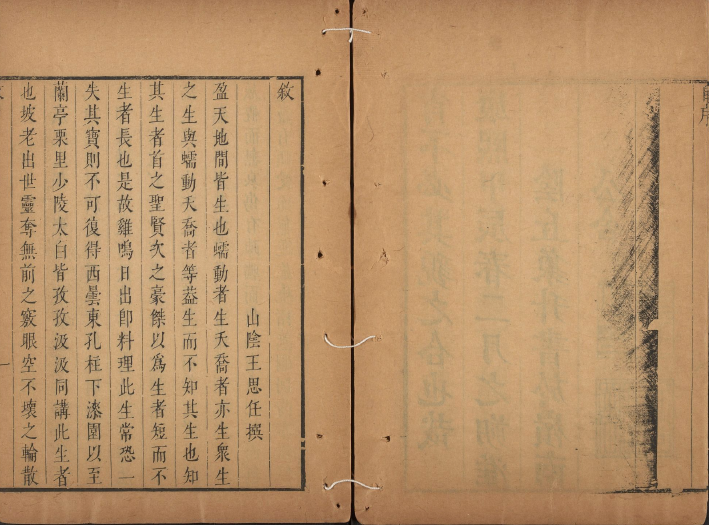 敘
山陰王思任撰
盈天地間皆生也蠕動者生夭喬者亦生衆生
之生與蠕動夭喬者等葢生而不知其生也知
其生者首之聖賢次之豪傑以爲生者短而不
生者長也是故雞鳴日出卽料理此生常恐一
失其寶則不可復得西曇東孔柱下漆園以至
蘭亭栗里少陵太白皆孜孜汲汲同講此生者
也坡老出世靈奪無前之竅眼空不壞之輪散